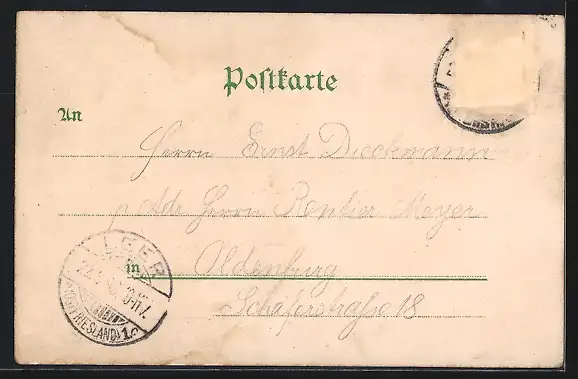 Postkarte
An
Herrn Ernst Dieckmann
p. Adr. Herrn Rentier Meyer
in Oldenburg
Schäferstraße 18
LEER
(OSTFRIESLAND) 1c